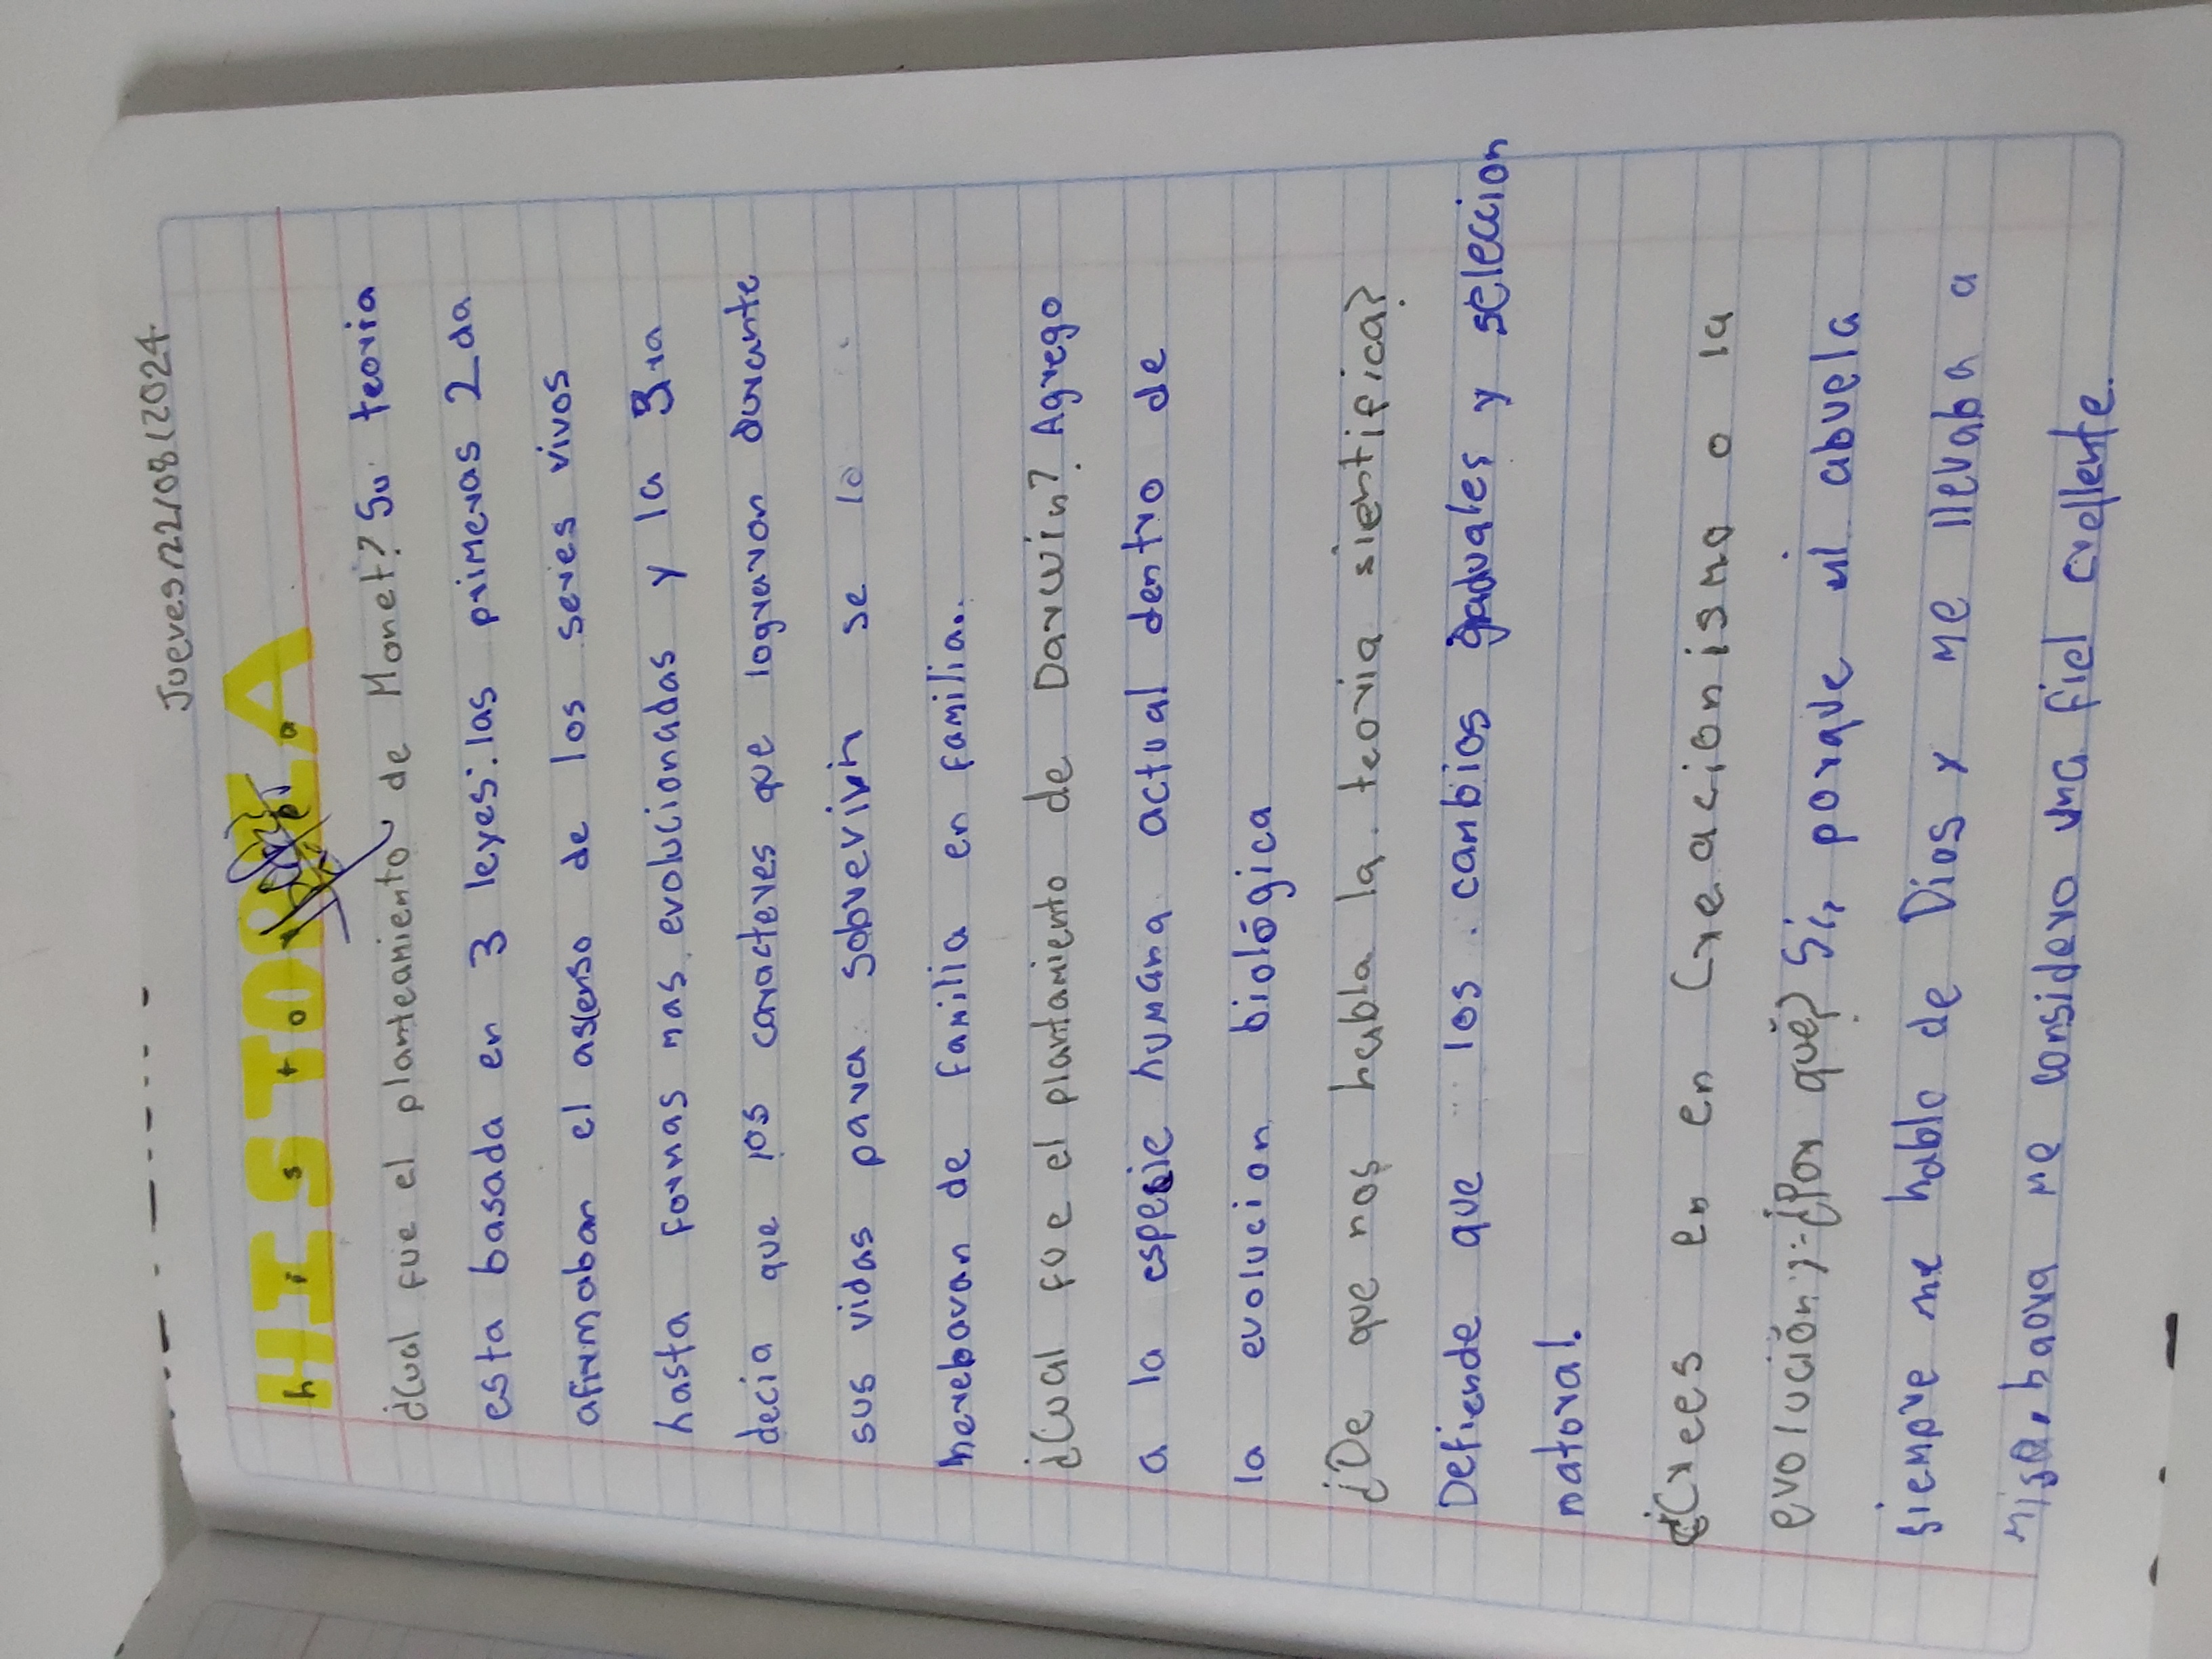 Jueves 22/08/2024
HISTORIA
historia
¿Cual fue el planteamiento de Monet? Su teoria
esta basada en 3 leyes: las primeras 2 da
afirmaban el asenso de los seres vivos
hasta formas mas evolucionadas y la 3ra
decia que los caracteres que lograran durante
sus vidas para sobrevivir se lo
herebaran de familia en familia.
¿Cual fue el plantamiento de Darwin? Agrego
a la especie humana actual dentro de
la evolucion biológica
¿De que nos habla la teoria sientifica?
Defiende que los cambios graduales y seleccion
natural.
¿Crees en en Creacionismo o la
evolución? ¿Por qué? Sí, porque mi abuela
siempre me hablo de Dios y me llevaba a
misa, haora me considero una fiel crellente.